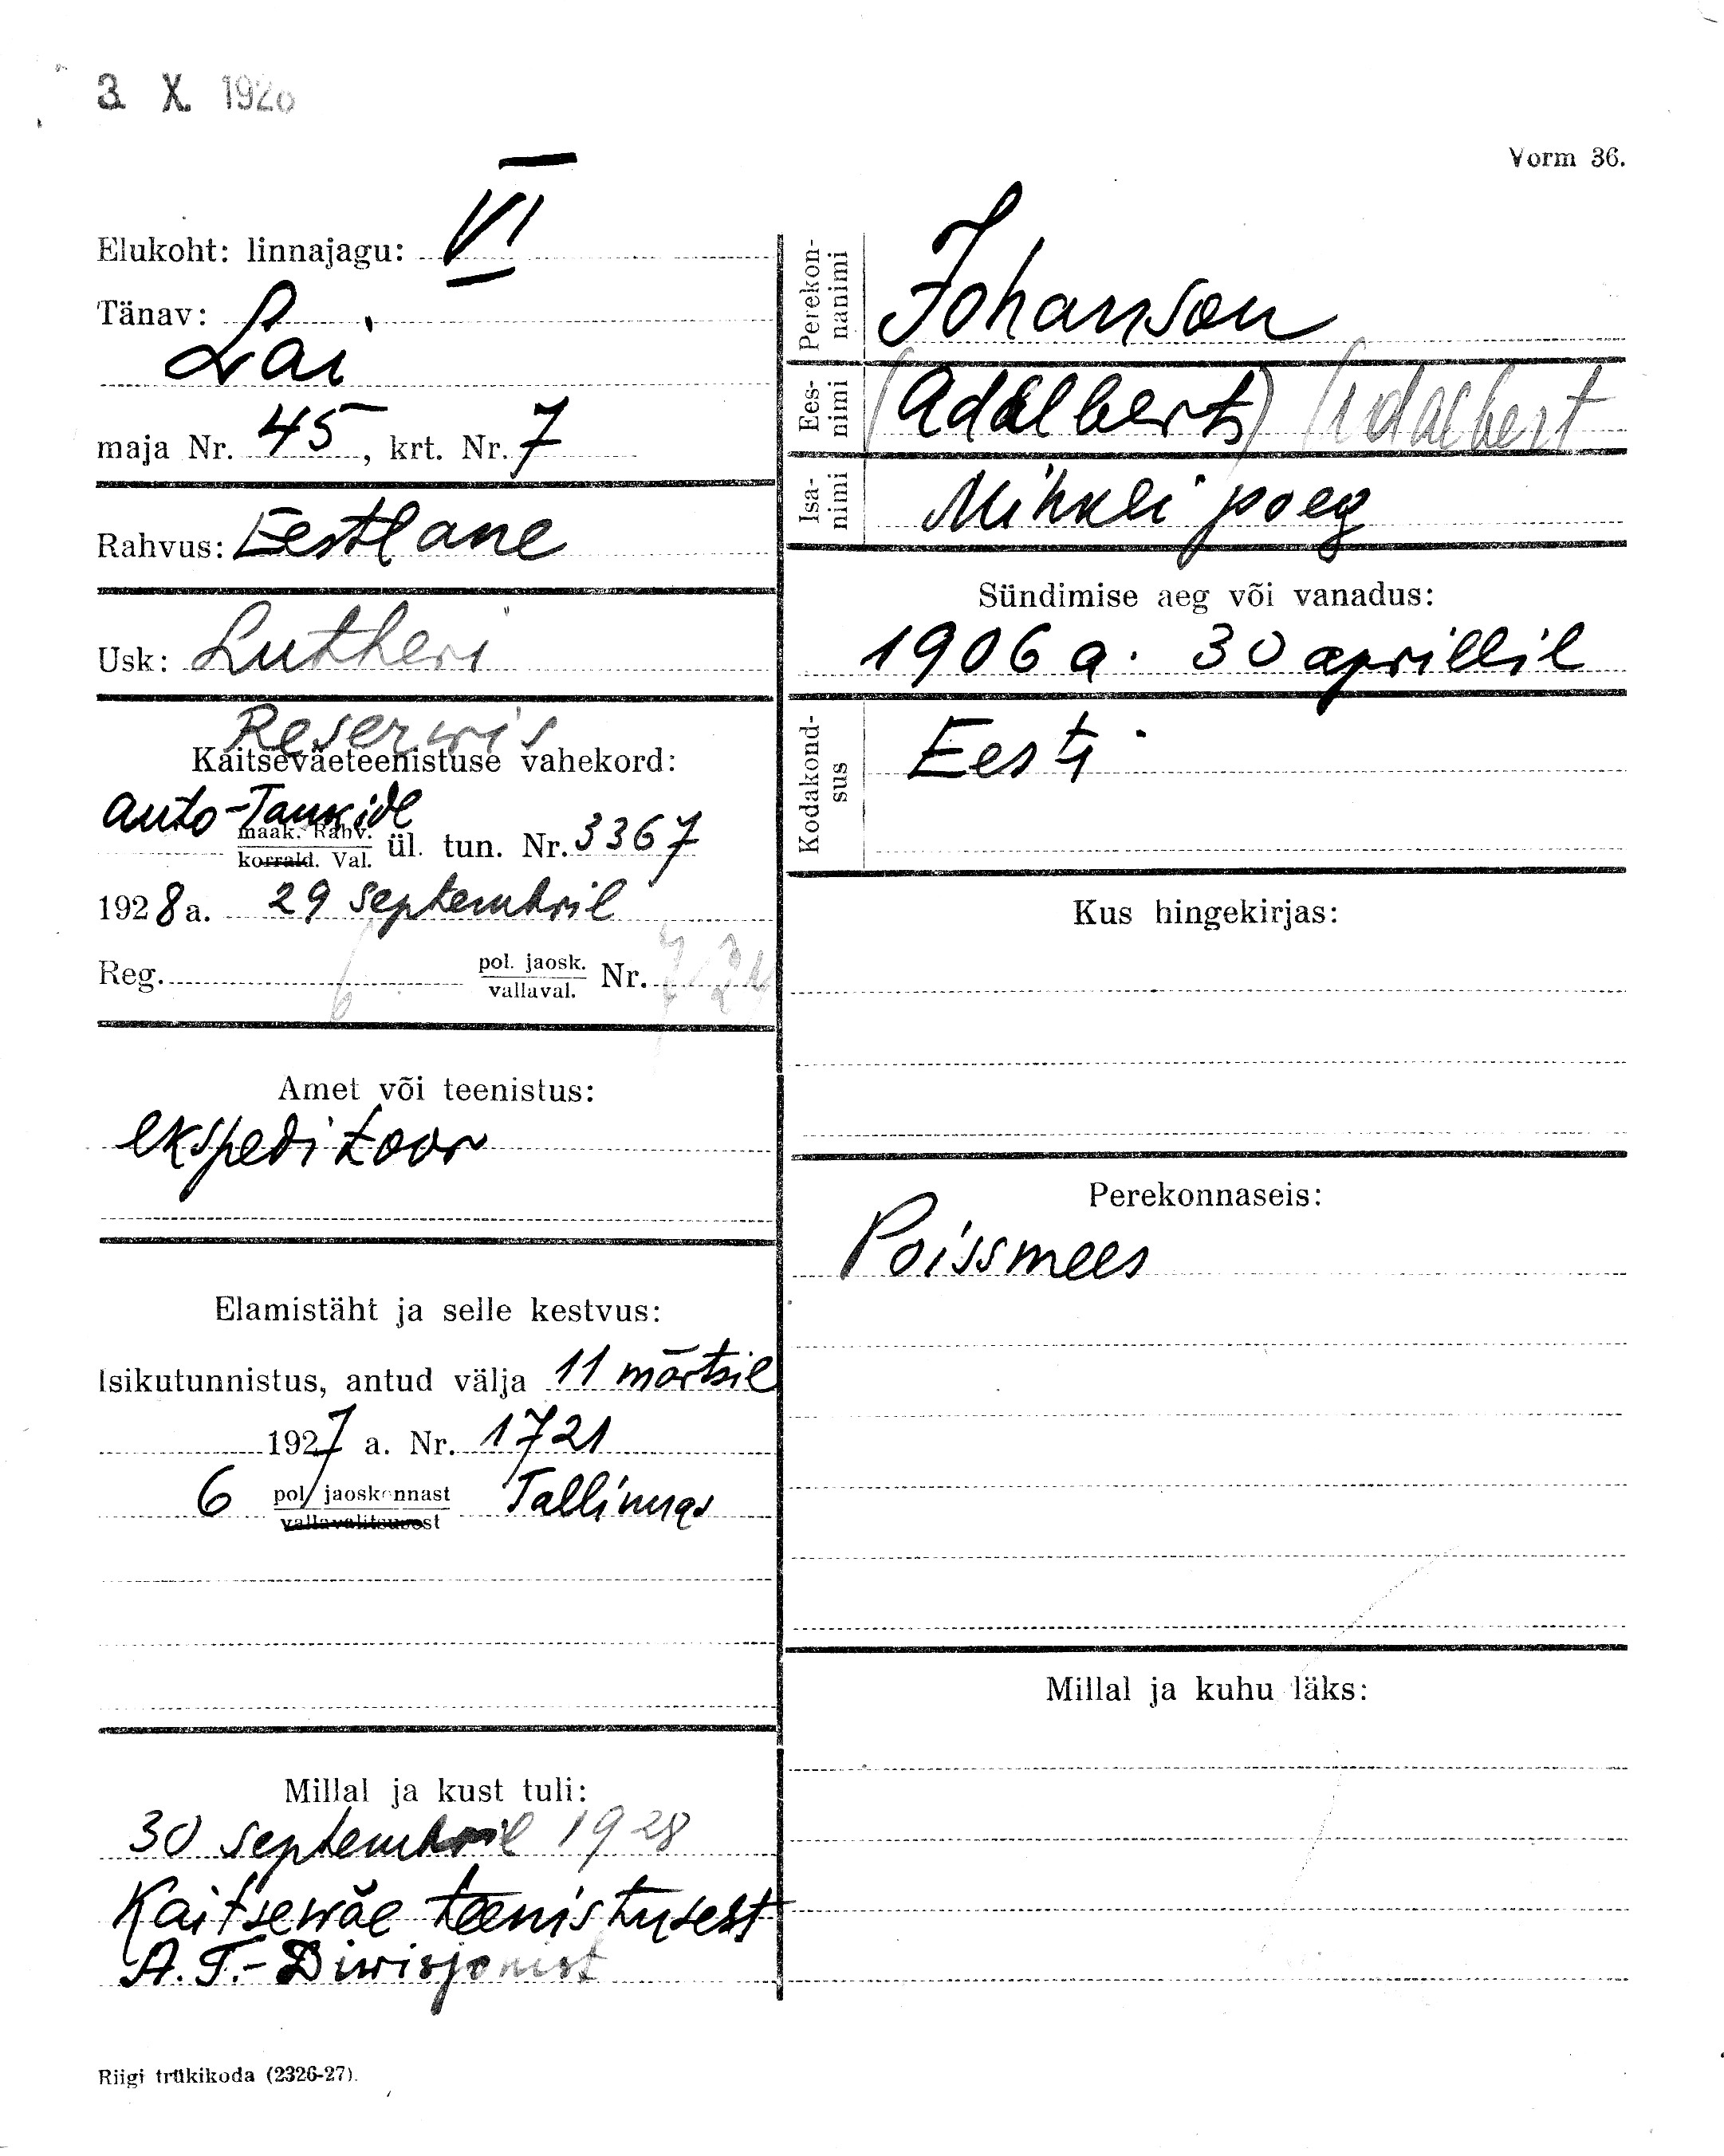 3. X. 1928
Vorm 36.
Elukoht: linnajagu: VI
Tänav:
Lai
maja Nr. 45, krt. Nr. 7
Rahvus: Eestlane
Usk: Lutheri
Reserwis
Kaitseväeteenistuse vahekord:
Auto-Tankide
maak. Rahv.
korrald. Val. ül. tun. Nr. 3367
1928 a. 29 septembril
Reg. 6 pol. jaosk.
vallaval. Nr.
Amet või teenistus:
ekspeditoor
Elamistäht ja selle kestvus:
Isikutunnistus, antud välja 11 märtsil
1927 a. Nr. 1721
6 pol. jaoskonnast
vallavalitsusest Tallinnas
Millal ja kust tuli:
30 septembril 1928
Kaitsewäe teenistusest
A.T.-Diwisjonist
Perekon-
nanimi Johanson
Ees-
nimi (Adalberts) Adalbert
Isa-
nimi Mihkli poeg
Sündimise aeg või vanadus:
1906 a. 30 aprillil
Kodakond-
sus Eesti
Kus hingekirjas:
Perekonnaseis:
Poissmees
Millal ja kuhu läks:
Riigi trükikoda (2326-27).